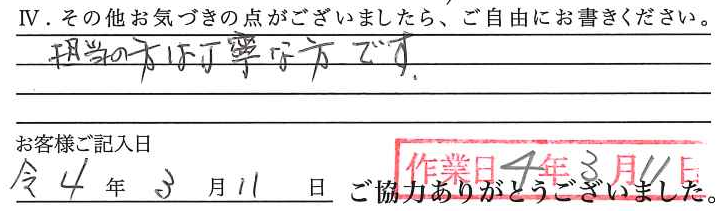 Ⅳ．その他お気づきの点がございましたら、ご自由にお書きください。
担当の方は丁寧な方です.
お客様ご記入日
令4年3月11日
作業日4年3月11日
ご協力ありがとうございました。